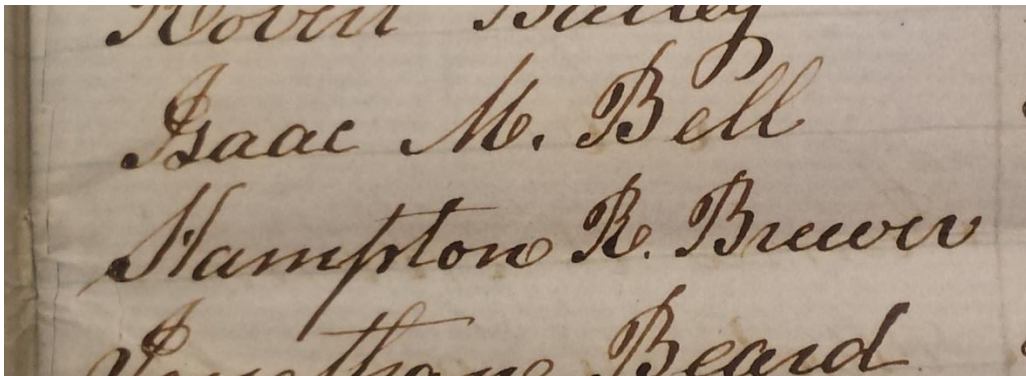 Robert Bailey
Isaac M. Bell
Hampton R. Brewer
Jonathan Beard